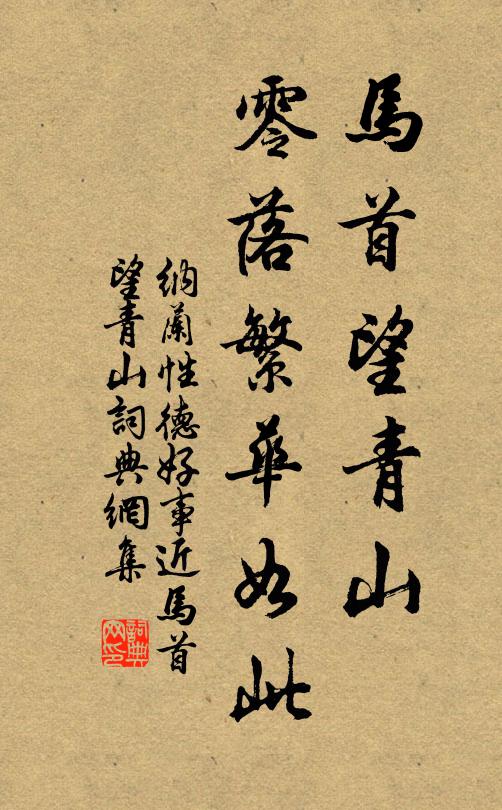 馬首望青山
零落繁華如此
納蘭性德好事近馬首
望青山詞典網集
詞典網印